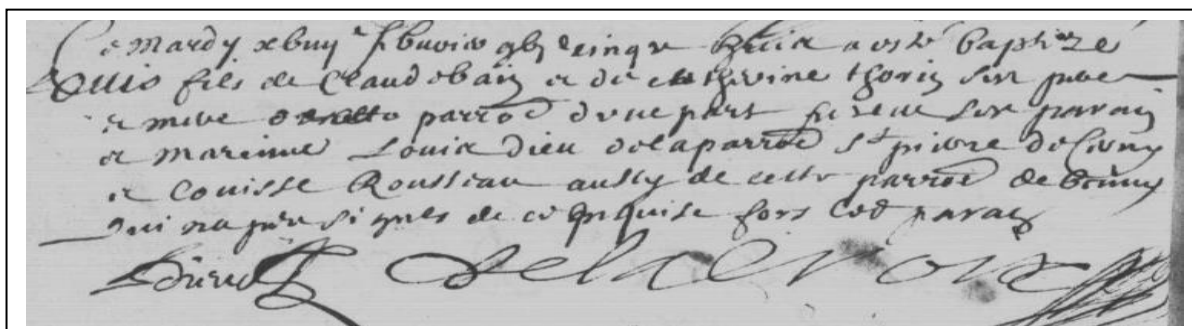 Ce Mardy xbiij e febvrier gbj cinqte huict a esté baptizé
Louis fils de Claude bain et de Catherine thorin ses pere
et mere de cette parroe d'une part furent ses parain
et marainne Louis dieu de la parroe St pierre de Civry
et Louisse Rousseau aussy de cette parroe de
qui n'a peu signer de ce enquise fors led parain
Dieu Delacroix